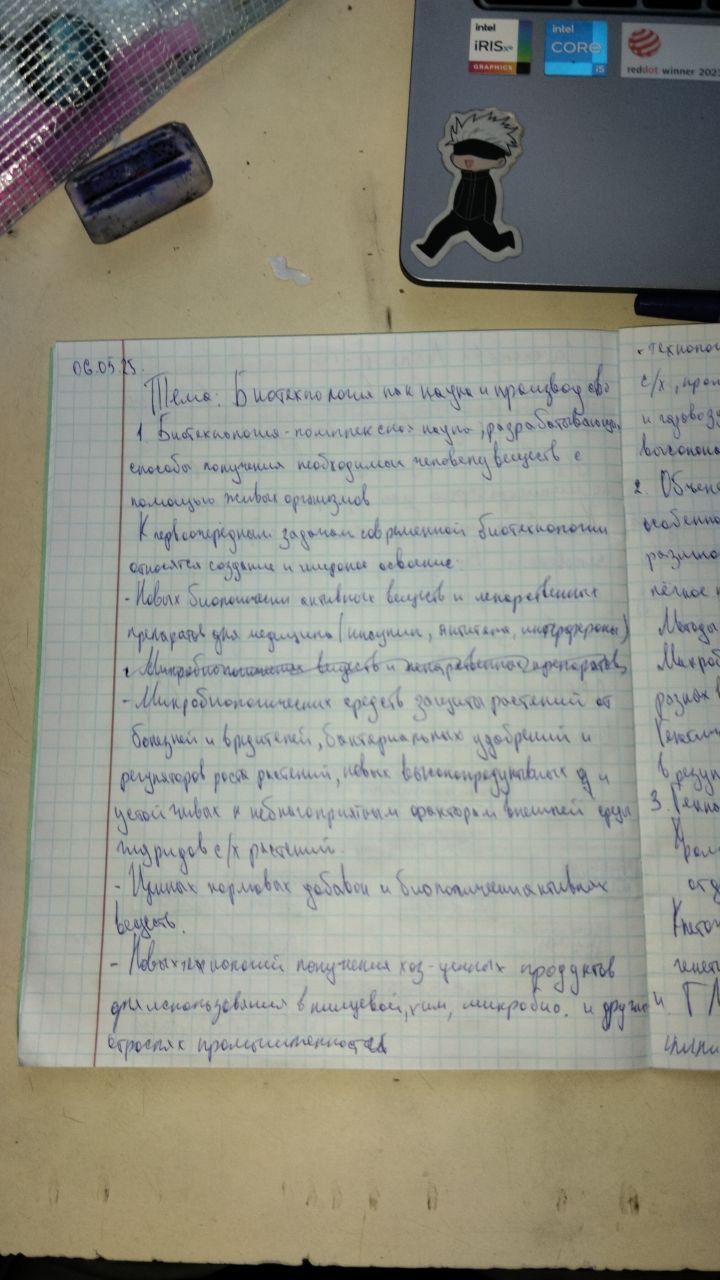 intel
iRIS xe
GRAPHICS
intel
CORE
i5
reddot winner 202
06.05.25.
Тема: Биотехнология как наука и производсво
1. Биотехнология - комплексная наука, разрабатывающая
способы получения необходимых человеку веществ с
помощью живых организмов
К первоочередным задачам современной биотехнологии
относятся создание и широкое освоение:
- Новых биологически активных веществ и лекарственных
препаратов для медицины (инсулин, антитела, интерфероны)
- Микробиологических веществ и лекарственных препаратов,
- Микробиологических средств защиты растений от
болезней и вредителей, бактериальных удобрений и
регуляторов роста растений, новых высокопродуктивных и
устойчивых к неблагоприятным факторам внешней среды
гибридов с/х растений.
- Ценных кормовых добавок и биологически активных
веществ.
- Новых технологий получения хоз-ценных продуктов
для использования в пищевой, хим, микробио. и других
отраслях промышленности
• технолог
с/х, пром
и газовозду
высокока
2. Объек
особенно
различ
лёгкое к
Методы
Микроб
разных
Генетич
в резул
3. Гено
Хром
отд
Клеточ
генети
и ГМ